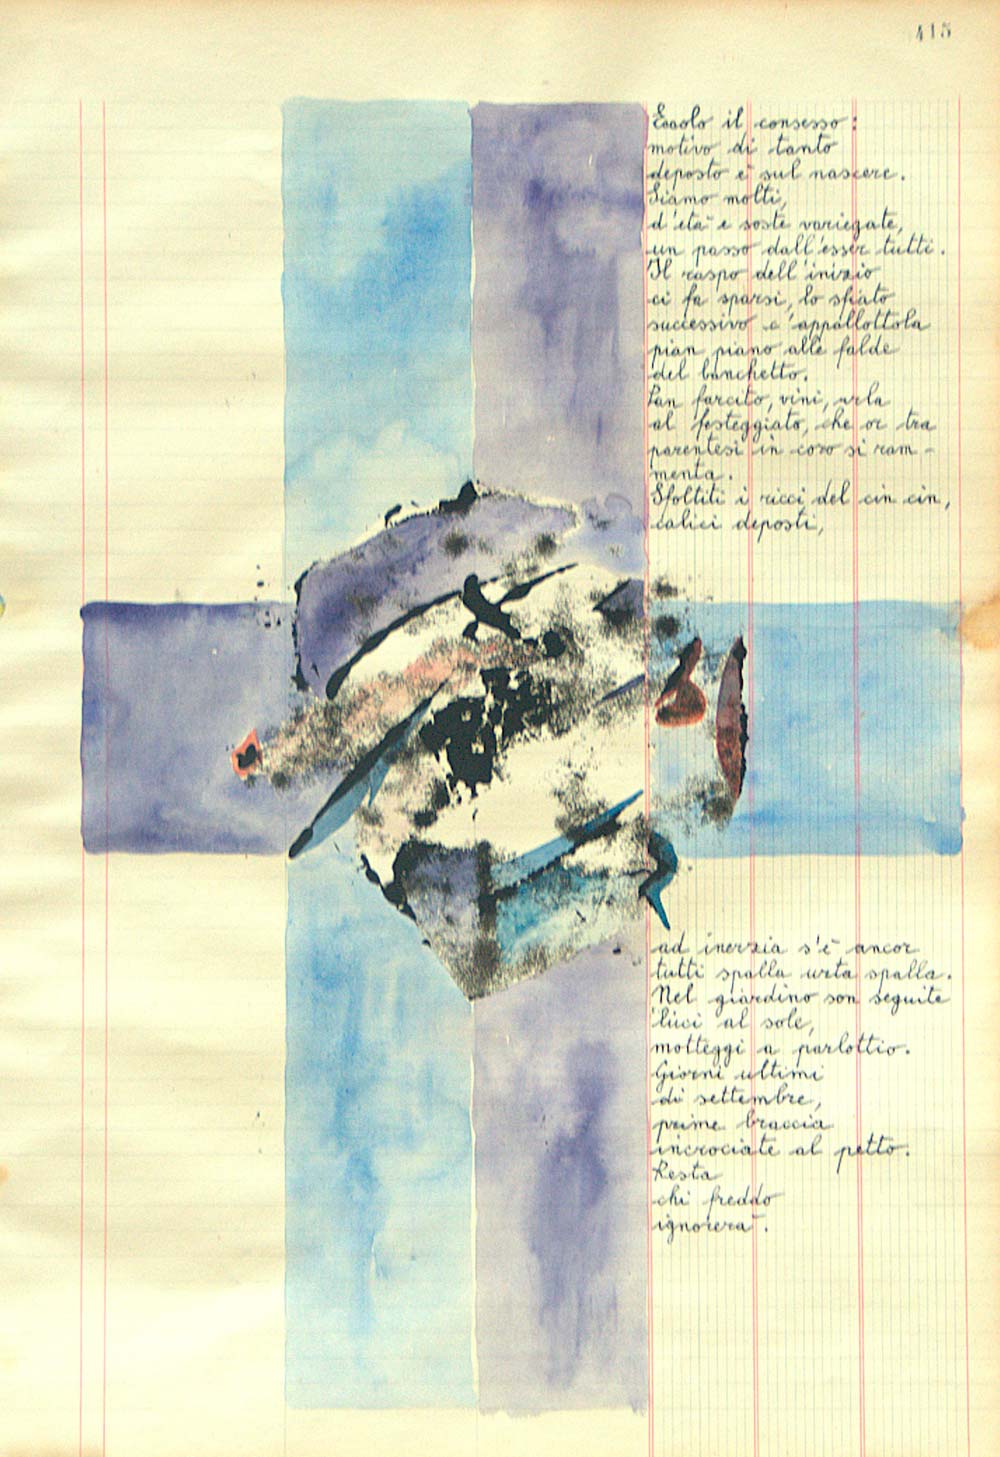 415
Eccolo il consesso:
motivo di tanto
deposto è sul nascere.
Siamo molti,
d'età e soste variegate,
un passo dall'esser tutti.
Il raspo dell'inizio
ci fa sparsi, lo sfiato
successivo c'appallottola
pian piano alle falde
del banchetto.
Pan farcito, vini, urla
al festeggiato, che or tra
parentesi in coro si ram-
menta.
Sfoltiti i ricci del cin cin,
calici deposti,
ad inerzia s'è ancor
tutti spalla urta spalla.
Nel giardino son seguite
luci al sole,
motteggi a parlottio.
Giorni ultimi
di settembre,
prime braccia
incrociate al petto.
Resta
chi freddo
ignorerà.